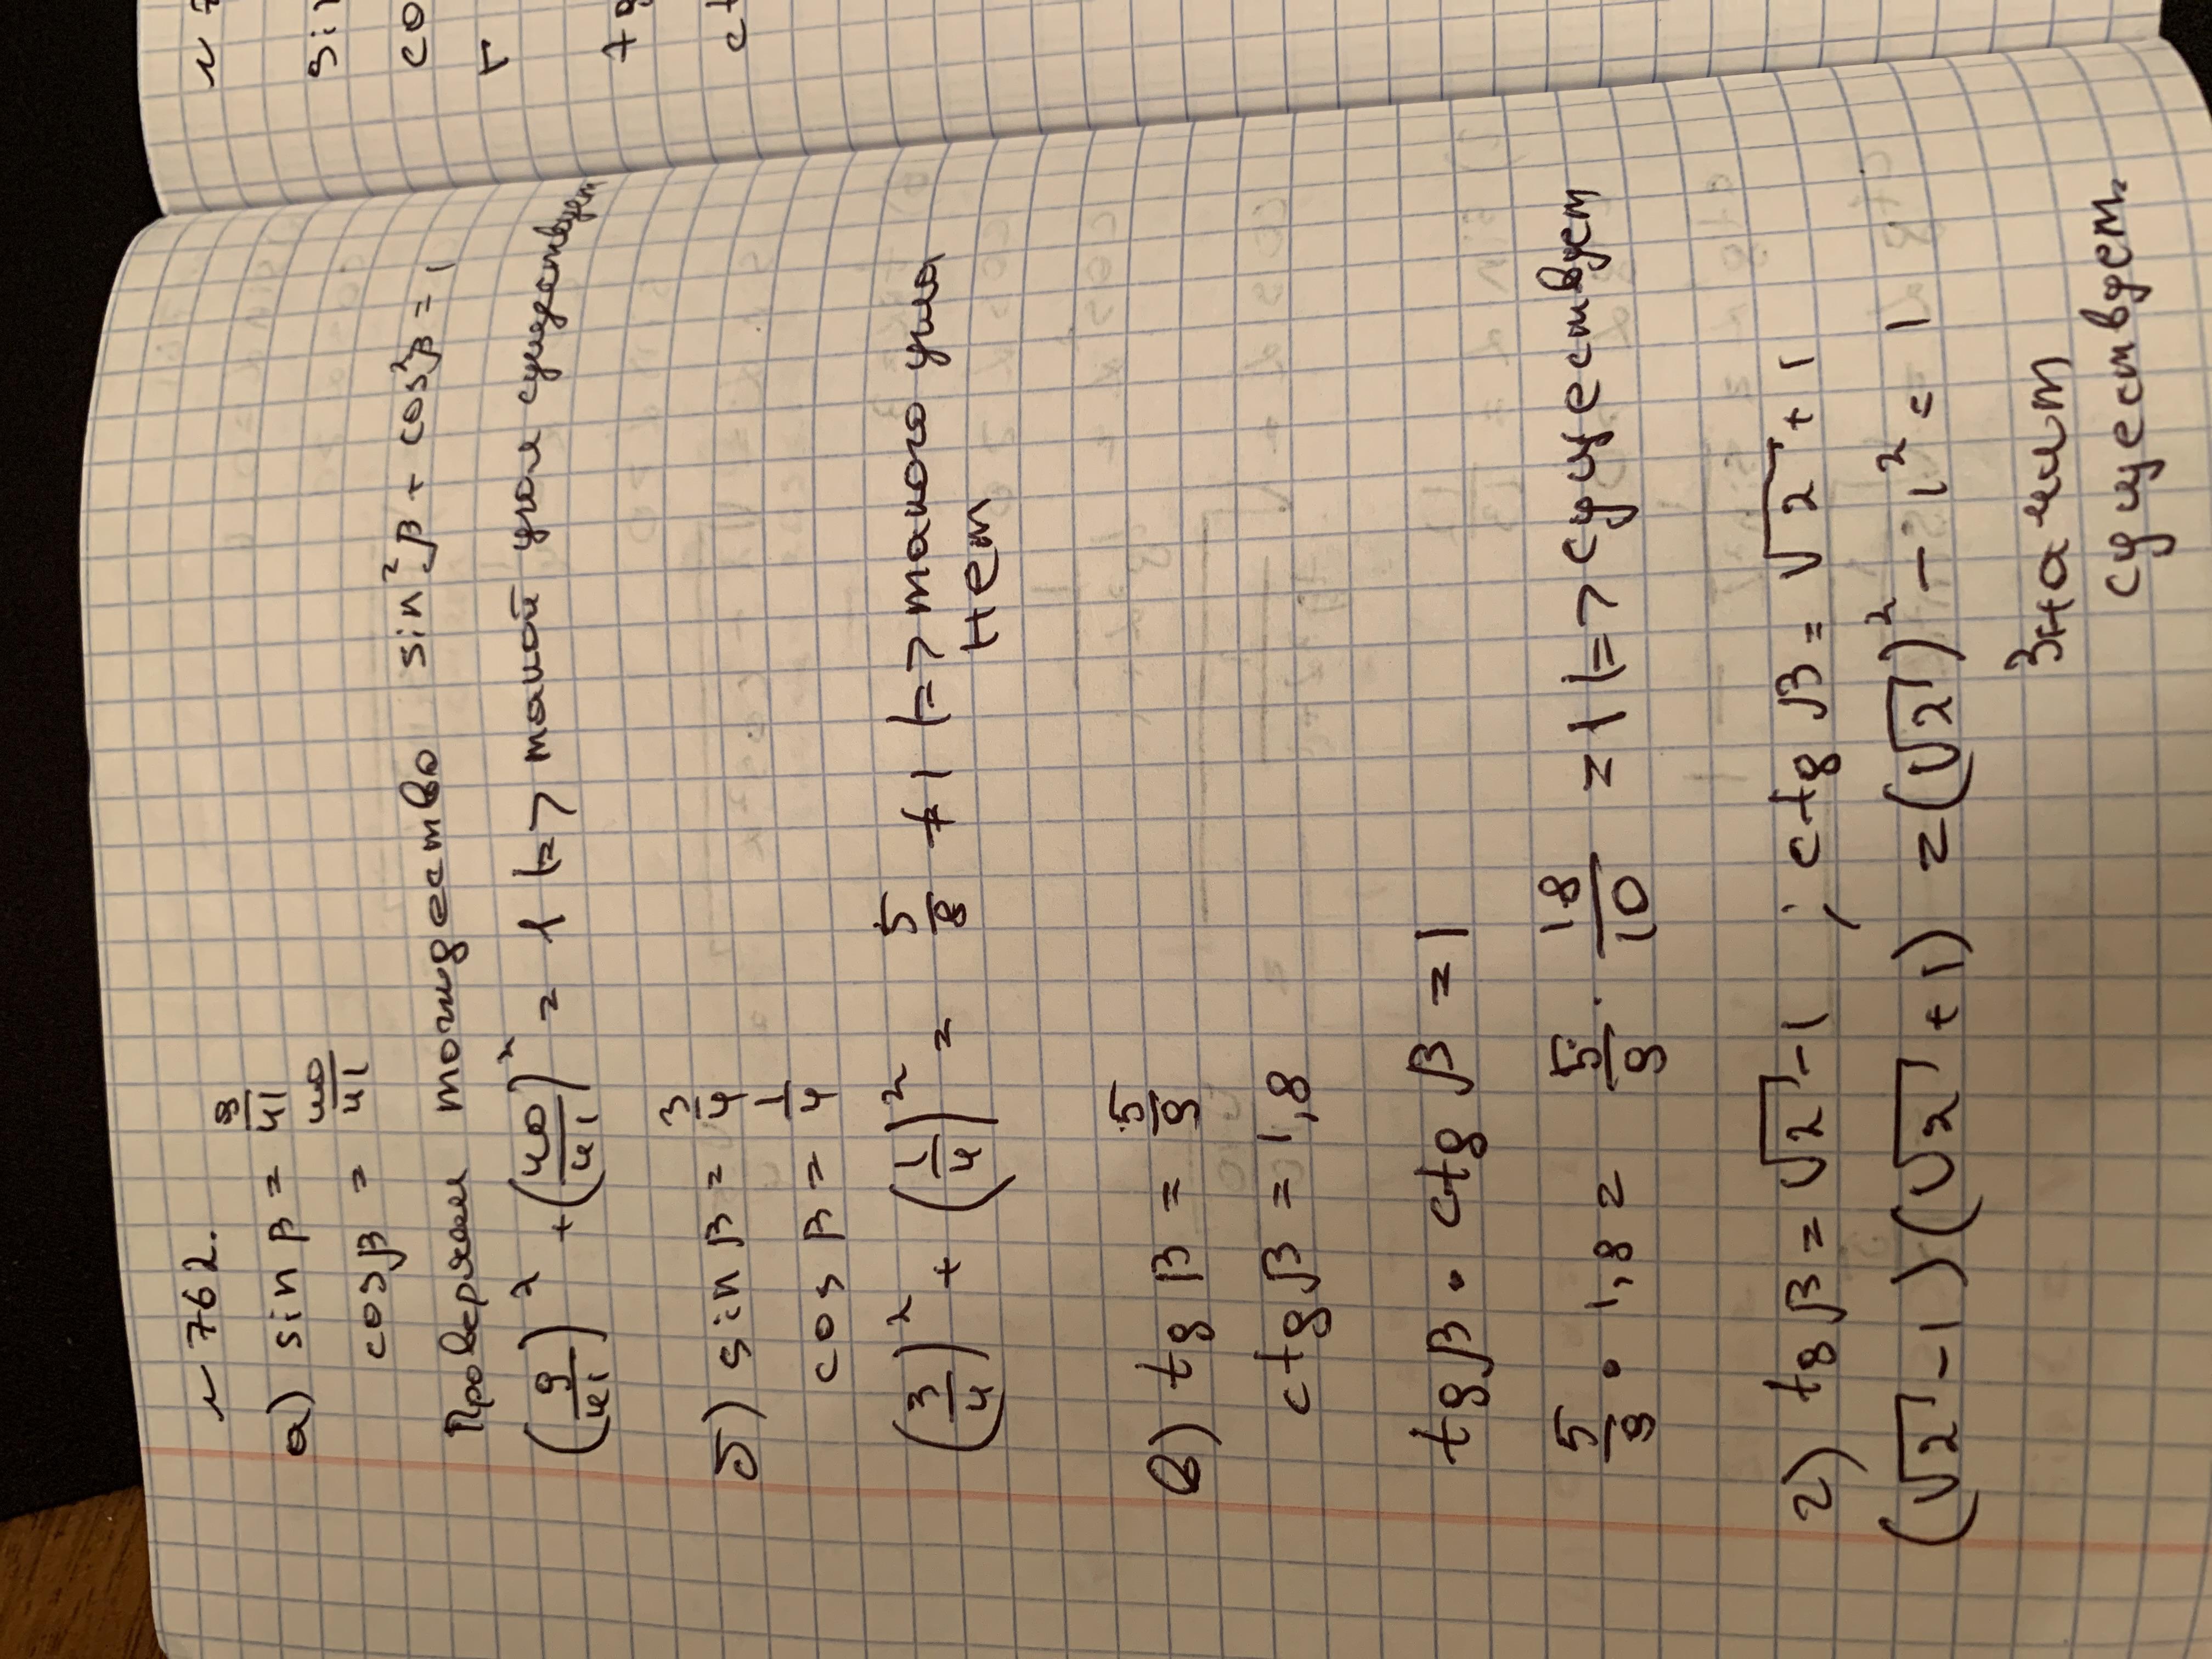 № 762.
а) sin β = 9/41
cos β = 40/41
Проверяем тождество sin²β + cos²β = 1
(9/41)² + (40/41)² = 1 |=> такой угол существует
б) sin β = 3/4
cos β = 1/4
(3/4)² + (1/4)² = 5/8 ≠ 1 |=> такого угла
нет
в) tg β = 5/9
ctg β = 1,8
tg β · ctg β = 1
5/9 · 1,8 = 5/9 · 18/10 = 1 |=> существует
г) tg β = √2 - 1 ; ctg β = √2 + 1
(√2 - 1)(√2 + 1) = (√2)² - 1² = 1
Значит
существует
№ 7
sin
co
tg
ct